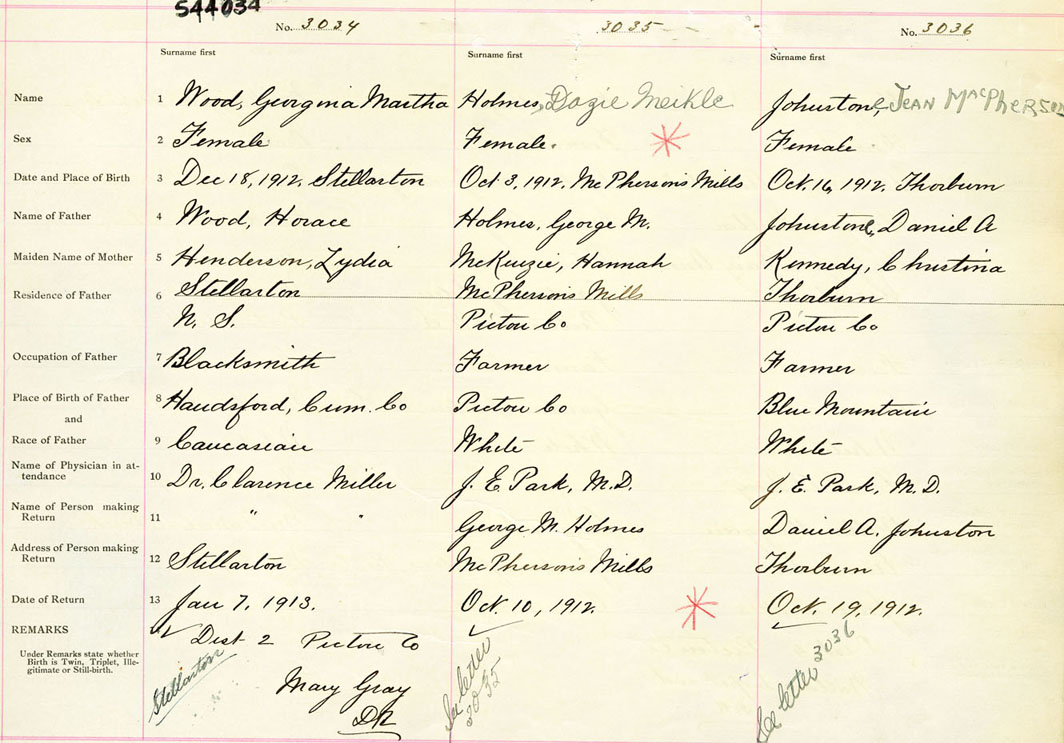 544034
No. 3034 3035 No. 3036
Surname first Surname first Surname first
Name 1 Wood, Georgina Martha Holmes, Dazie Meikle Johnstone, JEAN MACPHERSON
Sex 2 Female Female. Female
Date and Place of Birth 3 Dec 18, 1912. Stellarton Oct 3, 1912. McPhersons Mills Oct. 16, 1912. Thorburn
Name of Father 4 Wood, Horace Holmes, George M. Johnstone, Daniel A
Maiden Name of Mother 5 Henderson, Lydia McKenzie, Hannah Kennedy, Christina
Residence of Father 6 Stellarton McPhersons Mills Thorburn
N. S. Pictou Co Pictou Co
Occupation of Father 7 Blacksmith Farmer Farmer
Place of Birth of Father 8 Handsford, Cum. Co Pictou Co Blue Mountain
and
Race of Father 9 Caucasian White White
Name of Physician in at-
tendance 10 Dr. Clarence Miller J. E. Park, M.D. J. E. Park, M.D.
Name of Person making
Return 11 " " George M. Holmes Daniel A. Johnston
Address of Person making
Return 12 Stellarton McPhersons Mills Thorburn
Date of Return 13 Jan 7, 1913. Oct. 10, 1912. Oct. 19, 1912.
REMARKS 14 Dist 2 Pictou Co
Under Remarks state whether
Birth is Twin, Triplet, Ille-
gitimate or Still-birth.
Stellarton
Mary Gray
DR
See letter
3035
See letter 3036